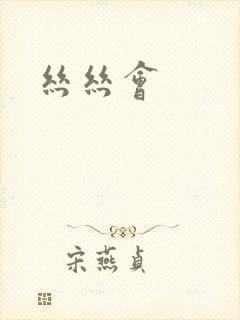 絲絲會
宋燕貞